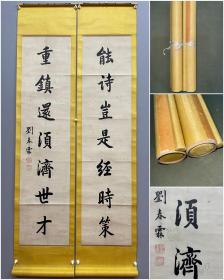 能诗豈是經時策
重鎮還須濟世才
劉春霖
須濟
劉春霖